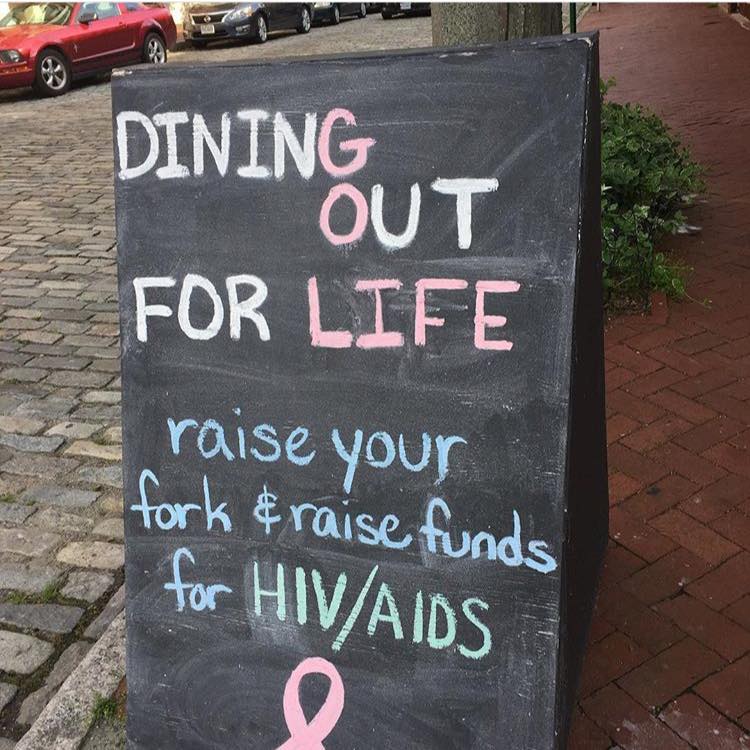 DINING
OUT
FOR LIFE
raise your
fork & raise funds
for HIV/AIDS